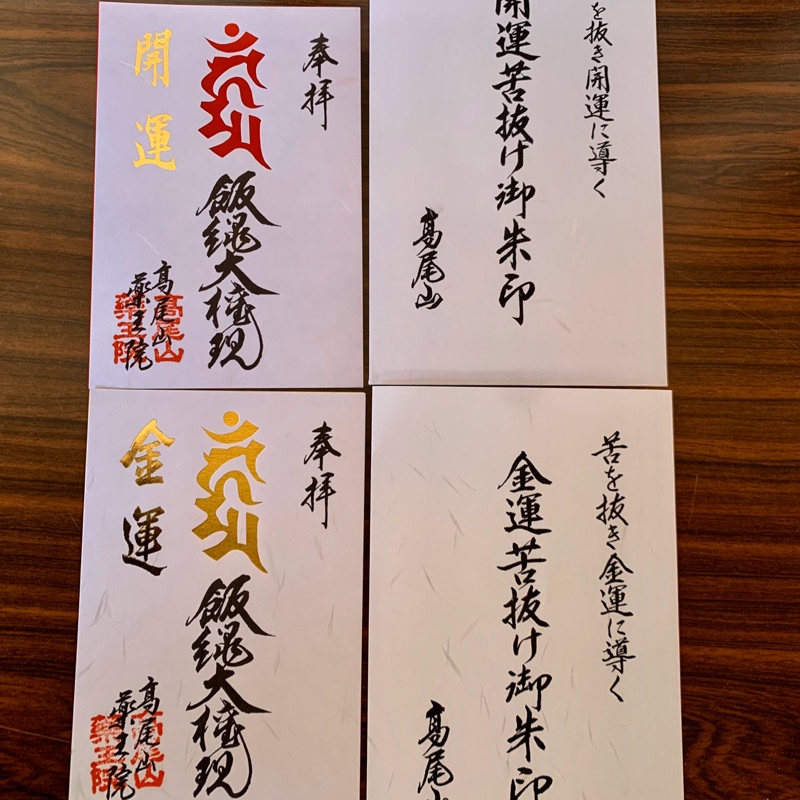 奉拝
飯縄大権現
開運
高尾山
薬王院
高尾山
薬王院
を抜き開運に導く
開運苦抜け御朱印
高尾山
奉拝
飯縄大権現
金運
高尾山
薬王院
高尾山
薬王院
苦を抜き金運に導く
金運苦抜け御朱印
高尾山